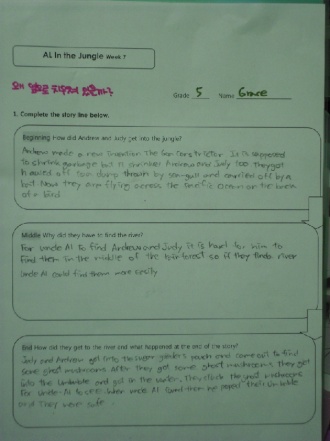 AL In the Jungle Week 7
Grade 5 Name Grace
1. Complete the story line below.
Beginning How did Andrew and Judy get into the jungle?
Andrew made a new invention The
to shrink garbage but it shrinked Andrew and Judy too. They got
hauled off to a dump by and carried off by a
bat. Now they are flying across the Pacific Ocean on the back
of a bird
Middle Why did they have to find the river?
For Uncle Al to find Andrew and Judy It is hard for him to
find them in the middle of the rainforest so if they find a river
Uncle Al could find them more easily
End How did they get to the river and what happened at the end of the story?
Judy and Andrew get into the sugar gliders pouch and come out to find
some ghost mushrooms After they got some ghost mushrooms They get
into the and got in the water. They the ghost mushrooms
For Uncle Al to see. When Uncle Al found them he their
and they were safe.